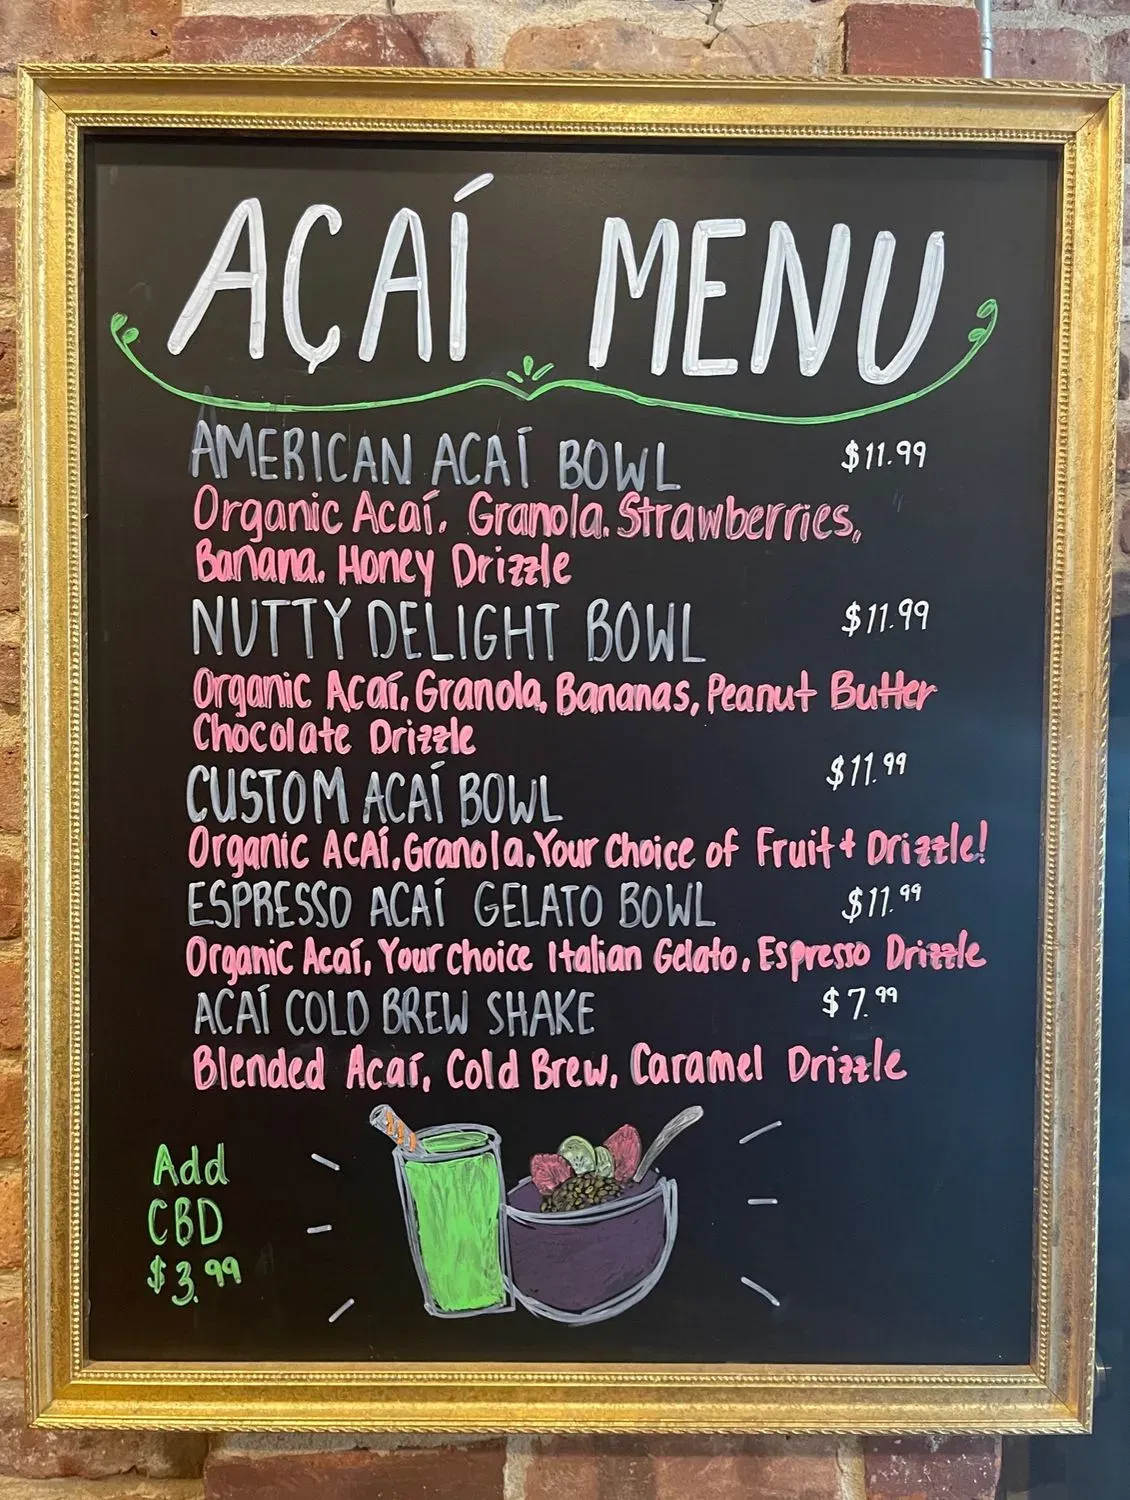 AÇAÍ MENU
AMERICAN ACAÍ BOWL $11.99
Organic Acaí. Granola. Strawberries,
Banana. Honey Drizzle
NUTTY DELIGHT BOWL $11.99
Organic Acaí, Granola, Bananas, Peanut Butter
Chocolate Drizzle
CUSTOM ACAÍ BOWL $11.99
Organic ACAÍ, Granola. Your Choice of Fruit + Drizzle!
ESPRESSO ACAÍ GELATO BOWL $11.99
Organic Acaí, Your Choice Italian Gelato, Espresso Drizzle
ACAÍ COLD BREW SHAKE $7.99
Blended Acaí, Cold Brew, Caramel Drizzle
Add
CBD
$3.99